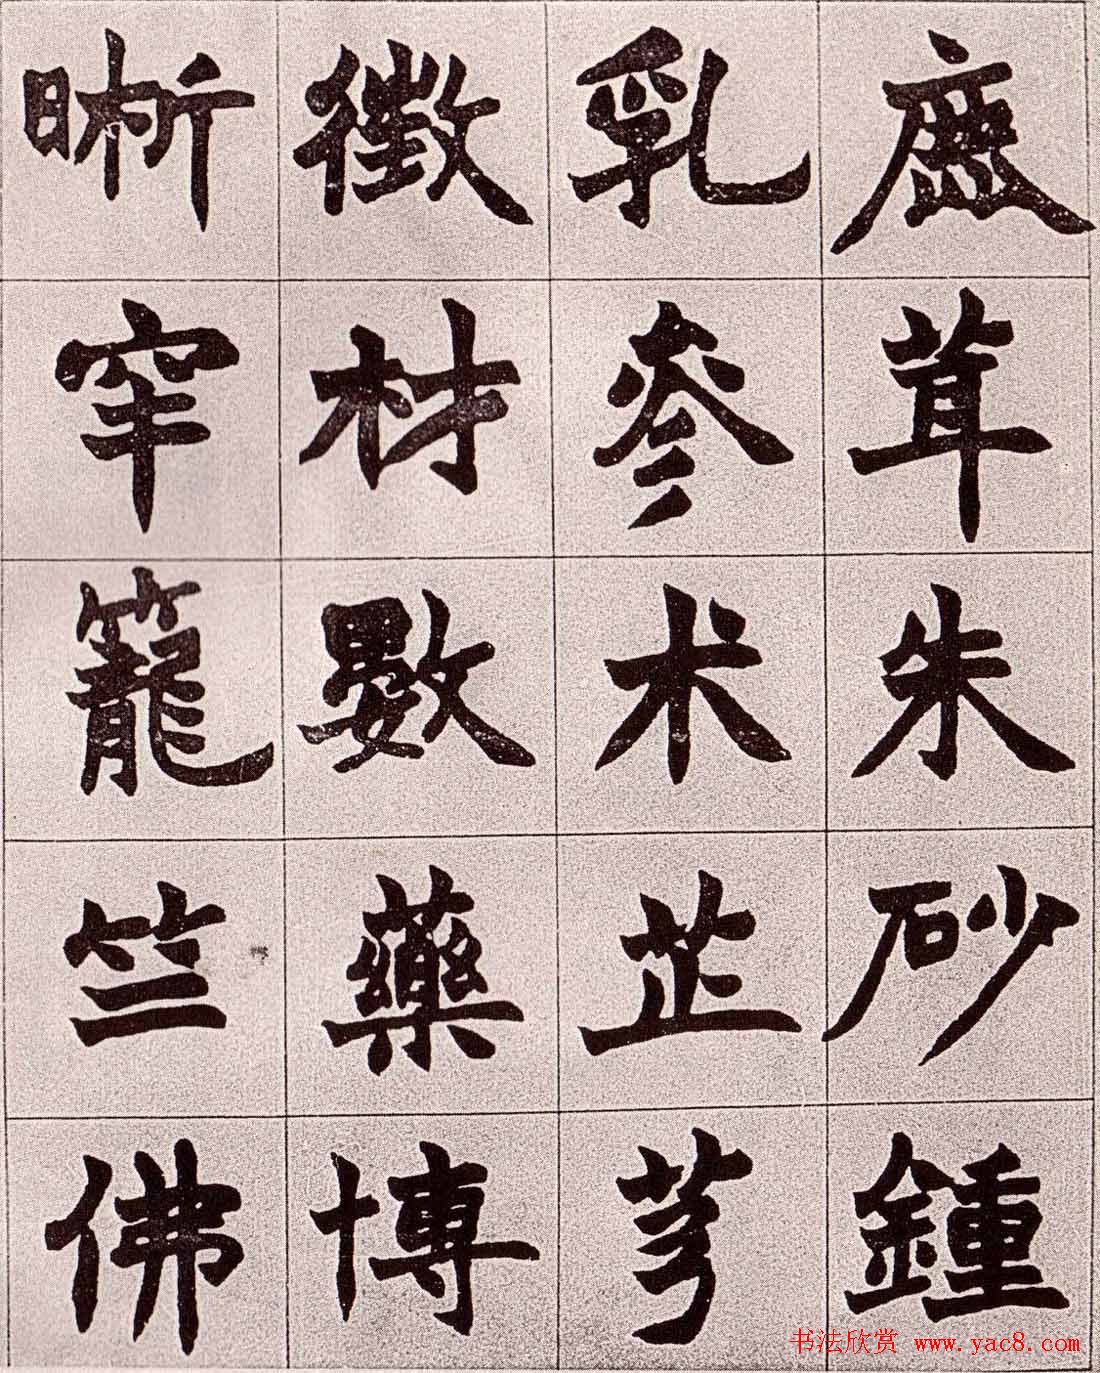 鹿茸朱砂鍾
乳參术芷芎
徵材數藥博
晰窂籠竺佛
书法欣赏 www.yac8.com